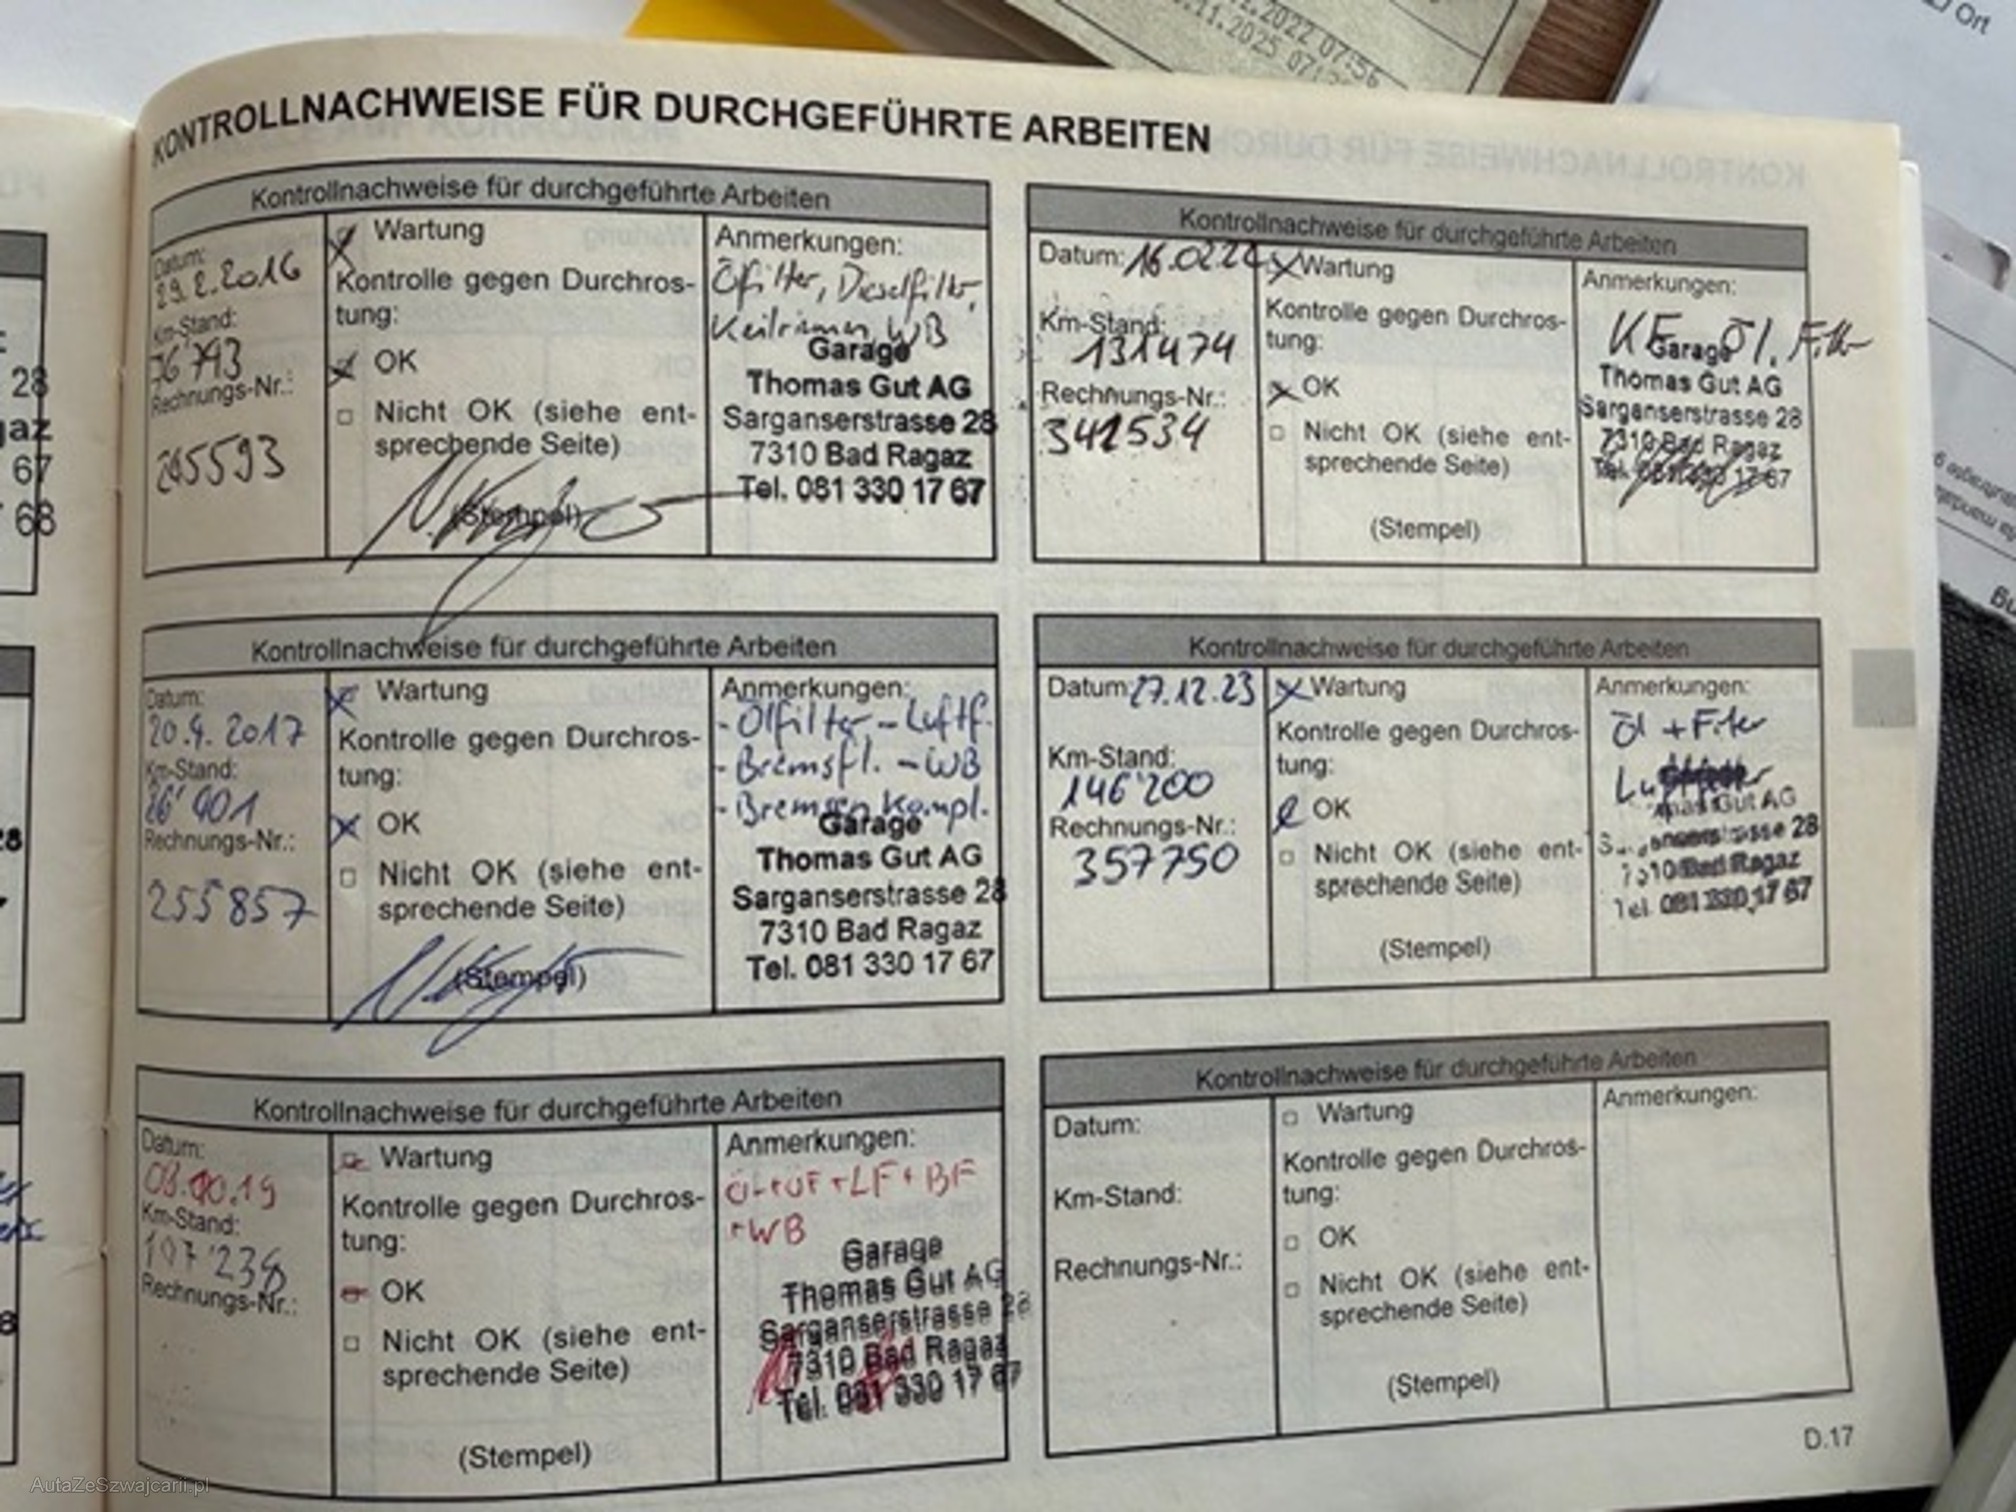 .2022 07:56
.11.2025 07:
Ort
KONTROLLNACHWEISE FÜR DURCHGEFÜHRTE ARBEITEN
28
gaz
67
68
Kontrollnachweise für durchgeführte Arbeiten
Datum:
29.2.2016
Km-Stand:
76793
Rechnungs-Nr.:
245593
Wartung
Kontrolle gegen Durchros-
tung:
OK
Nicht OK (siehe ent-
sprechende Seite)
(Stempel)
Anmerkungen:
Ölfilter, Dieselfilter,
Keilriemen, WB
Garage
Thomas Gut AG
Sarganserstrasse 28
7310 Bad Ragaz
Tel. 081 330 17 67
Kontrollnachweise für durchgeführte Arbeiten
Datum: 16.02.22
Km-Stand:
131474
Rechnungs-Nr.:
341534
Wartung
Kontrolle gegen Durchros-
tung:
OK
Nicht OK (siehe ent-
sprechende Seite)
(Stempel)
Anmerkungen:
Öl, Filter
Garage
Thomas Gut AG
Sarganserstrasse 28
7310 Bad Ragaz
Tel. 081 330 17 67
Kontrollnachweise für durchgeführte Arbeiten
Datum:
20.4.2017
Km-Stand:
Rechnungs-Nr.:
255857
Wartung
Kontrolle gegen Durchros-
tung:
OK
Nicht OK (siehe ent-
sprechende Seite)
(Stempel)
Anmerkungen:
- Ölfilter - Luftf.
- Bremsfl. - WB
- Bremsen kompl.
Garage
Thomas Gut AG
Sarganserstrasse 28
7310 Bad Ragaz
Tel. 081 330 17 67
Kontrollnachweise für durchgeführte Arbeiten
Datum: 27.12.23
Km-Stand:
146'200
Rechnungs-Nr.:
357750
Wartung
Kontrolle gegen Durchros-
tung:
OK
Nicht OK (siehe ent-
sprechende Seite)
(Stempel)
Anmerkungen:
Öl + Filter
mas Gut AG
Sarganserstrasse 28
7310 Bad Ragaz
Tel. 081 330 17 67
Kontrollnachweise für durchgeführte Arbeiten
Datum:
08.10.19
Km-Stand:
107'238
Rechnungs-Nr.:
Wartung
Kontrolle gegen Durchros-
tung:
OK
Nicht OK (siehe ent-
sprechende Seite)
(Stempel)
Anmerkungen:
Öl + ÖF + LF + BF
+ WB
Garage
Thomas Gut AG
Sarganserstrasse 28
7310 Bad Ragaz
Tel. 081 330 17 67
Kontrollnachweise für durchgeführte Arbeiten
Datum:
Km-Stand:
Rechnungs-Nr.:
Wartung
Kontrolle gegen Durchros-
tung:
OK
Nicht OK (siehe ent-
sprechende Seite)
(Stempel)
Anmerkungen:
D.17
AutaZeSzwajcarii.pl